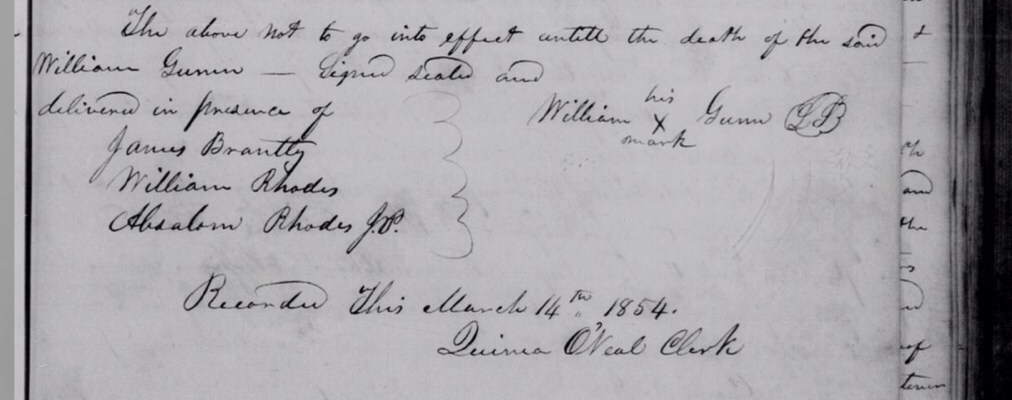 The above not to go into effect untill the death of the said
William Gunn — Signed sealed and
delivered in presence of
William his X mark Gunn
James Brantly
William Rhodes
Absalom Rhodes J.P.
Recorded This March 14th 1854.
O'Neal Clerk